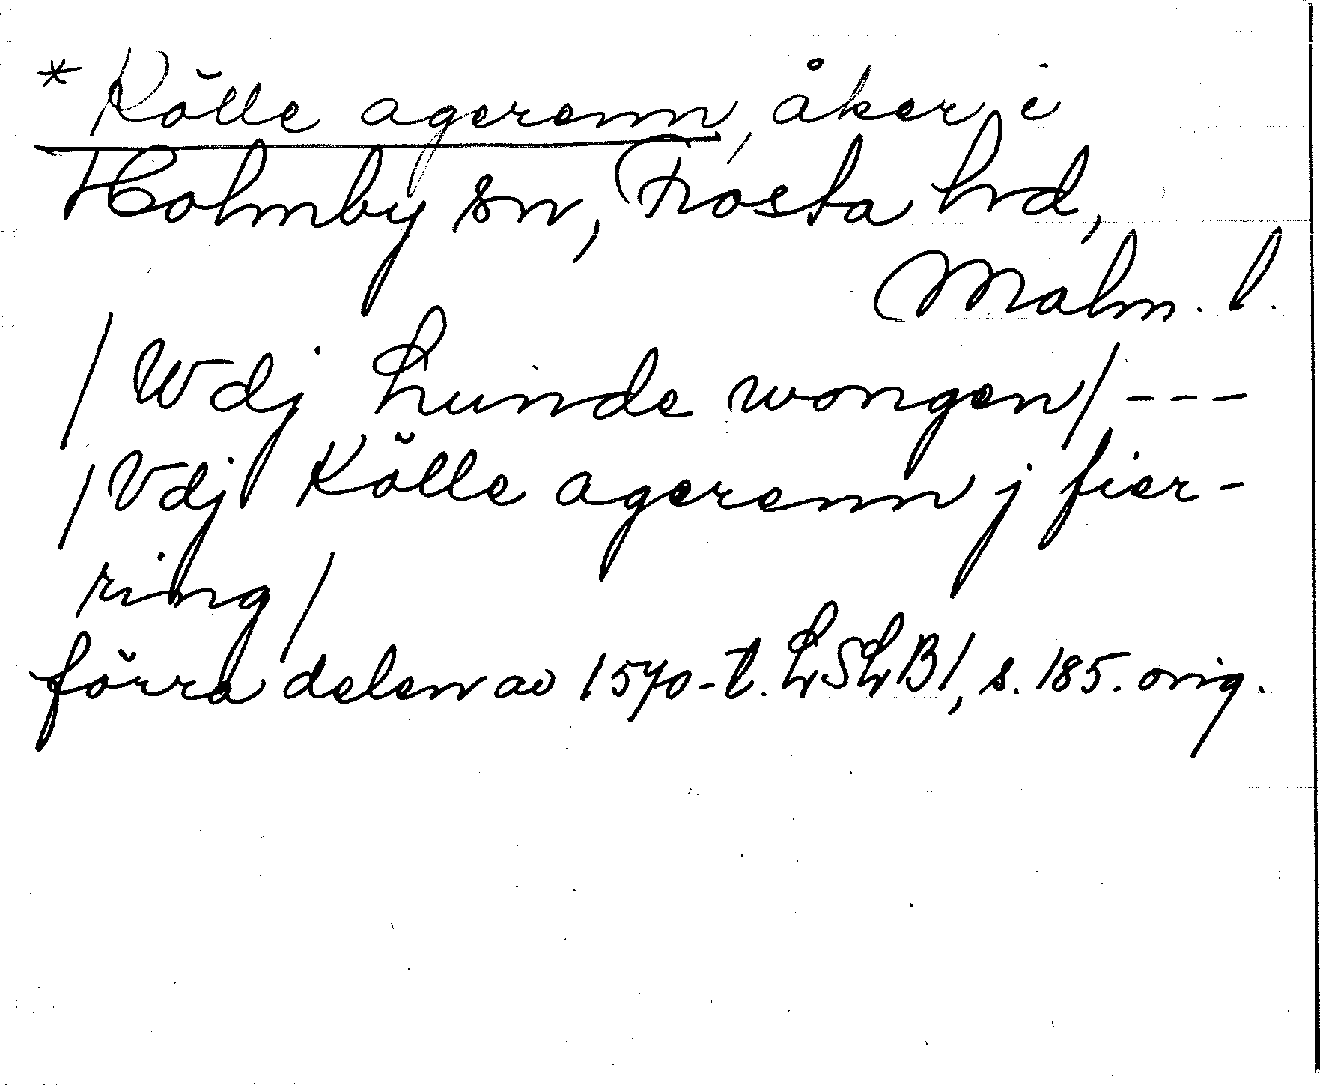 * Kölle agerenn, åker i
Holmby sn, Frosta hrd,
Malm. l.
/ Wdj hunde wongen / ---
/ Vdj Kölle agerenn j fier-
ring /
förra delen av 1570-t. LSLB1, s. 185. orig.